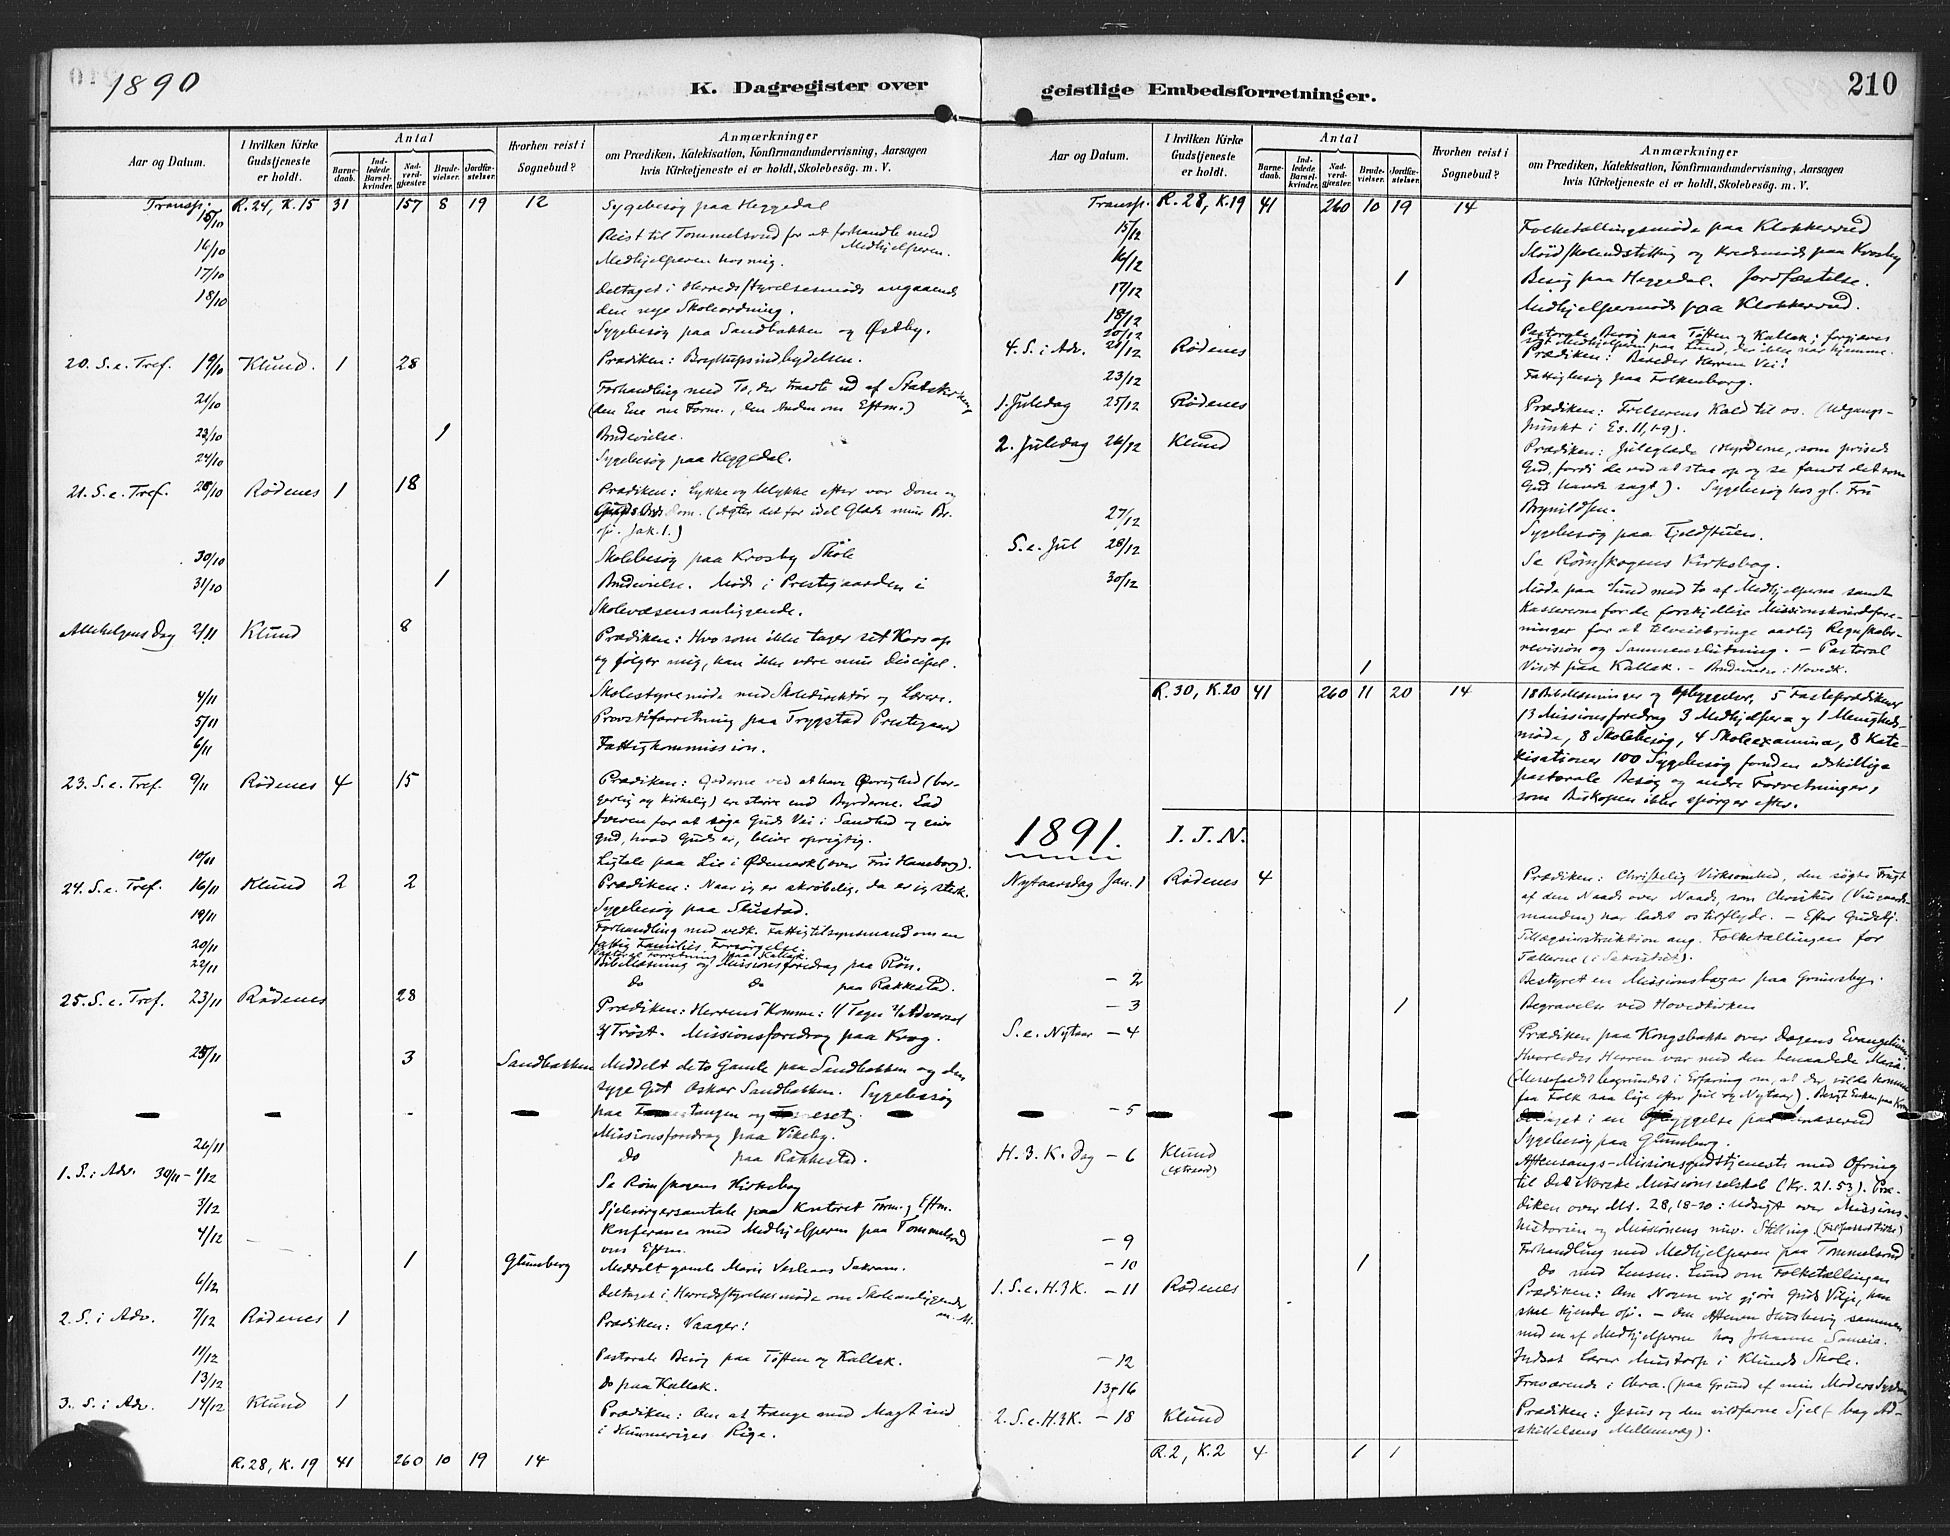 1890
K. Dagregister over
Aar og Datum.
I hvilken Kirke Gudstjeneste er holdt.
Antal
Barne-daab.
Ind-ledede Barsel-kvinder.
Nad-verd-gjæster
Brude-vielser.
Jordfæ-stelser.
Hvorhen reist i Sognebud?
Anmærkninger
om Prædiken, Katekisation, Konfirmandundervisning, Aarsagen
hvis Kirketjeneste ei er holdt, Skolebesög. m. V.
Transp. R. 24, K. 15 31 157 8 19 12
15/10 Sygebesög paa Heggedal
16/10 Reist til Tommelsrud for at forhandle med Medhjelperen.
17/10 Medhjelperen hos mig.
18/10 Deltaget i Herredsstyrelsesmöde angaaende
den nye Skoleordning.
Sygebesög paa Sandbakken og Østby.
20. S. e. Tref. 19/10 Klund. 1 28 Prædiken: Bryllupsindbydelsen.
21/10 Forhandling med To, der traadte ud af Statskirken
(den Ene om Form., den Anden om Eftm.)
23/10 1 Brudevielse.
24/10 Sygebesög paa Heggedal.
21. S. e. Tref. 28/10 Rödenes 1 18 Prædiken: Lykke og Ulykke efter vor Dom og
Guds Dom. (Agter det for idel Glæde mine Br.
osv. Jak. 1.)
30/10 Skolebesög paa Krosby Skole
31/10 1 Brudevielse. Möde i Prestgaarden i
Skolevæsensanliggende.
Allehelgens Dag 2/11 Klund 8 Prædiken: Hvo som ikke tager sit Kors op
og fölger mig, kan ikke være min Discipel.
4/11 Skolestyremöde med Skoledirektör og Lærere.
5/11 Provstiforretning paa Trygstad Prestegaard
6/11 Fattigkommission.
23. S. e. Tref. 9/11 Rödenes 4 15 Prædiken: Goderne ved at have Øvrighed (bor-
gerlig og kirkelig) ere större end Byrderne. Lad
Iveren for at söge Guds Vei i Sandhed og give
Gud, hvad Guds er, blive oprigtig.
10/11 Ligtale paa Lie i Ødemark (over Fru Hansborg).
24. S. e. Tref. 16/11 Klund 2 2 Prædiken: Naar jeg er skröbelig, da er jeg stærk.
19/11 Sygebesög paa Slustad.
20/11 Forhandling med vedk. Fattigtilsynsmand om en
fattig Families Forsörgelse.
22/11 Bibellæsning og Missionsforedrag paa Rön.
do do paa Rakkestad.
25. S. e. Tref. 23/11 Rödenes 28 Prædiken: Herrens Komme: 1/ Tegn 2/ Advarsel
3/ Tröst. Missionsforedrag paa Krog.
25/11 3 Sandbakken Meddelt de to Gamle paa Sandbakken og den
syge Gut Oskar Sandbakken. Sygebesög
paa
26/11 Missionsforedrag paa Vikeby.
do paa Rakkestad.
1. S. i Adv. 30/11 - 1/12 Se Römskogens Kirkebog
3/12 Sjelesörgersamtale paa Kontoret Form. og Eftm.
4/12 Konferance med Medhjelperen paa Tommelsrud
om Eftm.
1 Glumberg Meddelt gamle Marie Sakram.
6/12 Deltaget i Herredsstyrelsesmöde om Skoleanliggender m. M.
2. S. i Adv. 7/12 Rödenes 1 Prædiken: Vaager!
11/12 Pastorale Besög paa Töften og Kallak.
13/12 do paa Kallak.
3. S. i Adv. 14/12 Klund 1 Prædiken: Om at trænge med Magt ind
i Himmeriges Rige.
R. 28, K. 19 41 260 10 19 14
geistlige Embedsforretninger.
210
Aar og Datum.
I hvilken Kirke Gudstjeneste er holdt.
Antal
Barne-daab.
Ind-ledede Barsel-kvinder.
Nad-verd-gjæster
Brude-vielser.
Jordfæ-stelser.
Hvorhen reist i Sognebud?
Anmærkninger
om Prædiken, Katekisation, Konfirmandundervisning, Aarsagen
hvis Kirketjeneste ei er holdt, Skolebesög. m. V.
Transp. R. 28, K. 19 41 260 10 19 14
15/12 Folketællingsmöde paa Klokkerrud
16/12 Slöidskoleudstilling og Kredsmöde paa Krosby
17/12 1 Besög paa Heggedal. Jordfæstelse.
18/12 Medhjelpermöde paa Klokkerud.
20/12 Pastorale Besög paa Töften og Kallak; forgjæves
sögt Medhjelperen paa Lund, der ikke var hjemme.
4. S. i Adv. 21/12 Rödenes Prædiken: Bereder Herrens Vei!
23/12 Fattigbesög paa Folkenborg.
1. Juledag 25/12 Rödenes Prædiken: Frelserens Kald til os. (Udgangs-
punkt i Es. 11, 1-9).
2. Juledag 26/12 Klund Prædiken: Juleglæde (Hyrderne, som prisede
Gud, fordi de ved at staa op og se fandt det som
Gud havde sagt). Sygebesög hos gl. Fru
Brynildsen.
27/12 Sygebesög paa Fjeldstuen.
S. e. Jul 28/12 Se Römskogens Kirkebog.
30/12 Möde paa Lund med to af Medhjelperne samt
Kassererne for de forskjellige Missionskvindefore-
ninger for at tilveiebringe aarlig Regnskabs-
revision og Sammenslutning. - Pastoral
1 Visit paa Kallak. - Brudevielse i Hovedk.
R. 30, K. 20 41 260 11 20 14 18 Bibellæsninger og Opbyggelser, 5 Fasteprædikener
13 Missionsforedrag 3 Medhjelper- og 1 Menigheds-
möde, 8 Skolebesög, 4 Skoleexamina, 8 Kate-
kisationer 100 Sygebesög foruden adskillige
pastorale Besög og andre Forretninger,
som Biskopen ikke spörger efter.
1891. I. J. N.
Nytaarsdag Jan. 1 Rödenes 4 Prædiken: Christelig Virksomhed, den søgte Frugt
af den Naade over Naade, som Christus (Viingaards-
manden) har ladet os tilflyde. - Efter Gudstj.
Tillægsinstruktion ang. Folketællingen for
Tællerne (i Sakristiet).
- 2 Bestyret en Missionsbazar paa Grimsby.
- 3 1 Begravelse ved Hovedkirken
S. e. Nytaar - 4 Prædiken paa Kongsbakke over Dagens Evangelium.
Hvorledes Herren var med den benaadede Maria.
(Messefaldt begrundet i Erfaring om, at der vilde komme
faa Folk saa lige efter Jul og Nytaar). Besögt Enken paa
- 5 Deltaget i en Opbyggelse paa
Sygebesög paa Glumberg.
H. 3. K. Dag - 6 Klund (extraord) Aftensangs-Missionsgudstjeneste med Ofring
til Det Norske Missionsselskab (Kr. 21.53). Præ-
diken over Mt. 28, 18-20: Udsigt over Missions-
historien og Missionens nuv. Stilling.
- 9 Forhandling med Medhjelperen paa Tommelsrud
- 10 1 Do med Lensm. Lund om Folketællingen
1. S. e. H. 3 K. - 11 Rödenes Prædiken: Om Nogen vil gjöre Guds Vilje, han
skal kjende osv. - Om Aftenen Husbesög sammen
med en af Medhjelperne hos Johanne Sameia.
- 12 Indsat Lærer Mustorp i Klunds Skole.
13-16 Fraværende i Chra. (paa Grund af min Moders Sygdom
2. S. e. H. 3 K. - 18 Klund Prædiken: Jesus og den vildfarne Sjel (- bag Ad-
skillelsens Mellemvæg).
R. 2, K. 2 4 1 1